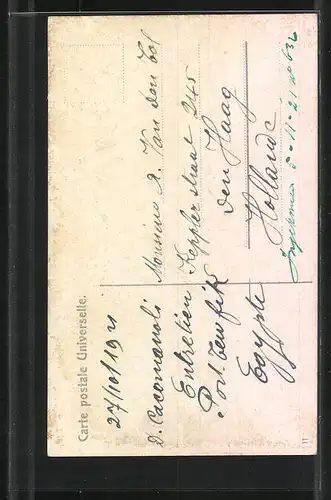 Carte postale Universelle.
27/10/19
D. Cacomanoli
Entretien
Port. Tewfik
Egypte
Monsieur D. Van den Bol
Kepplerstraat 245
Den Haag
Hollande
11